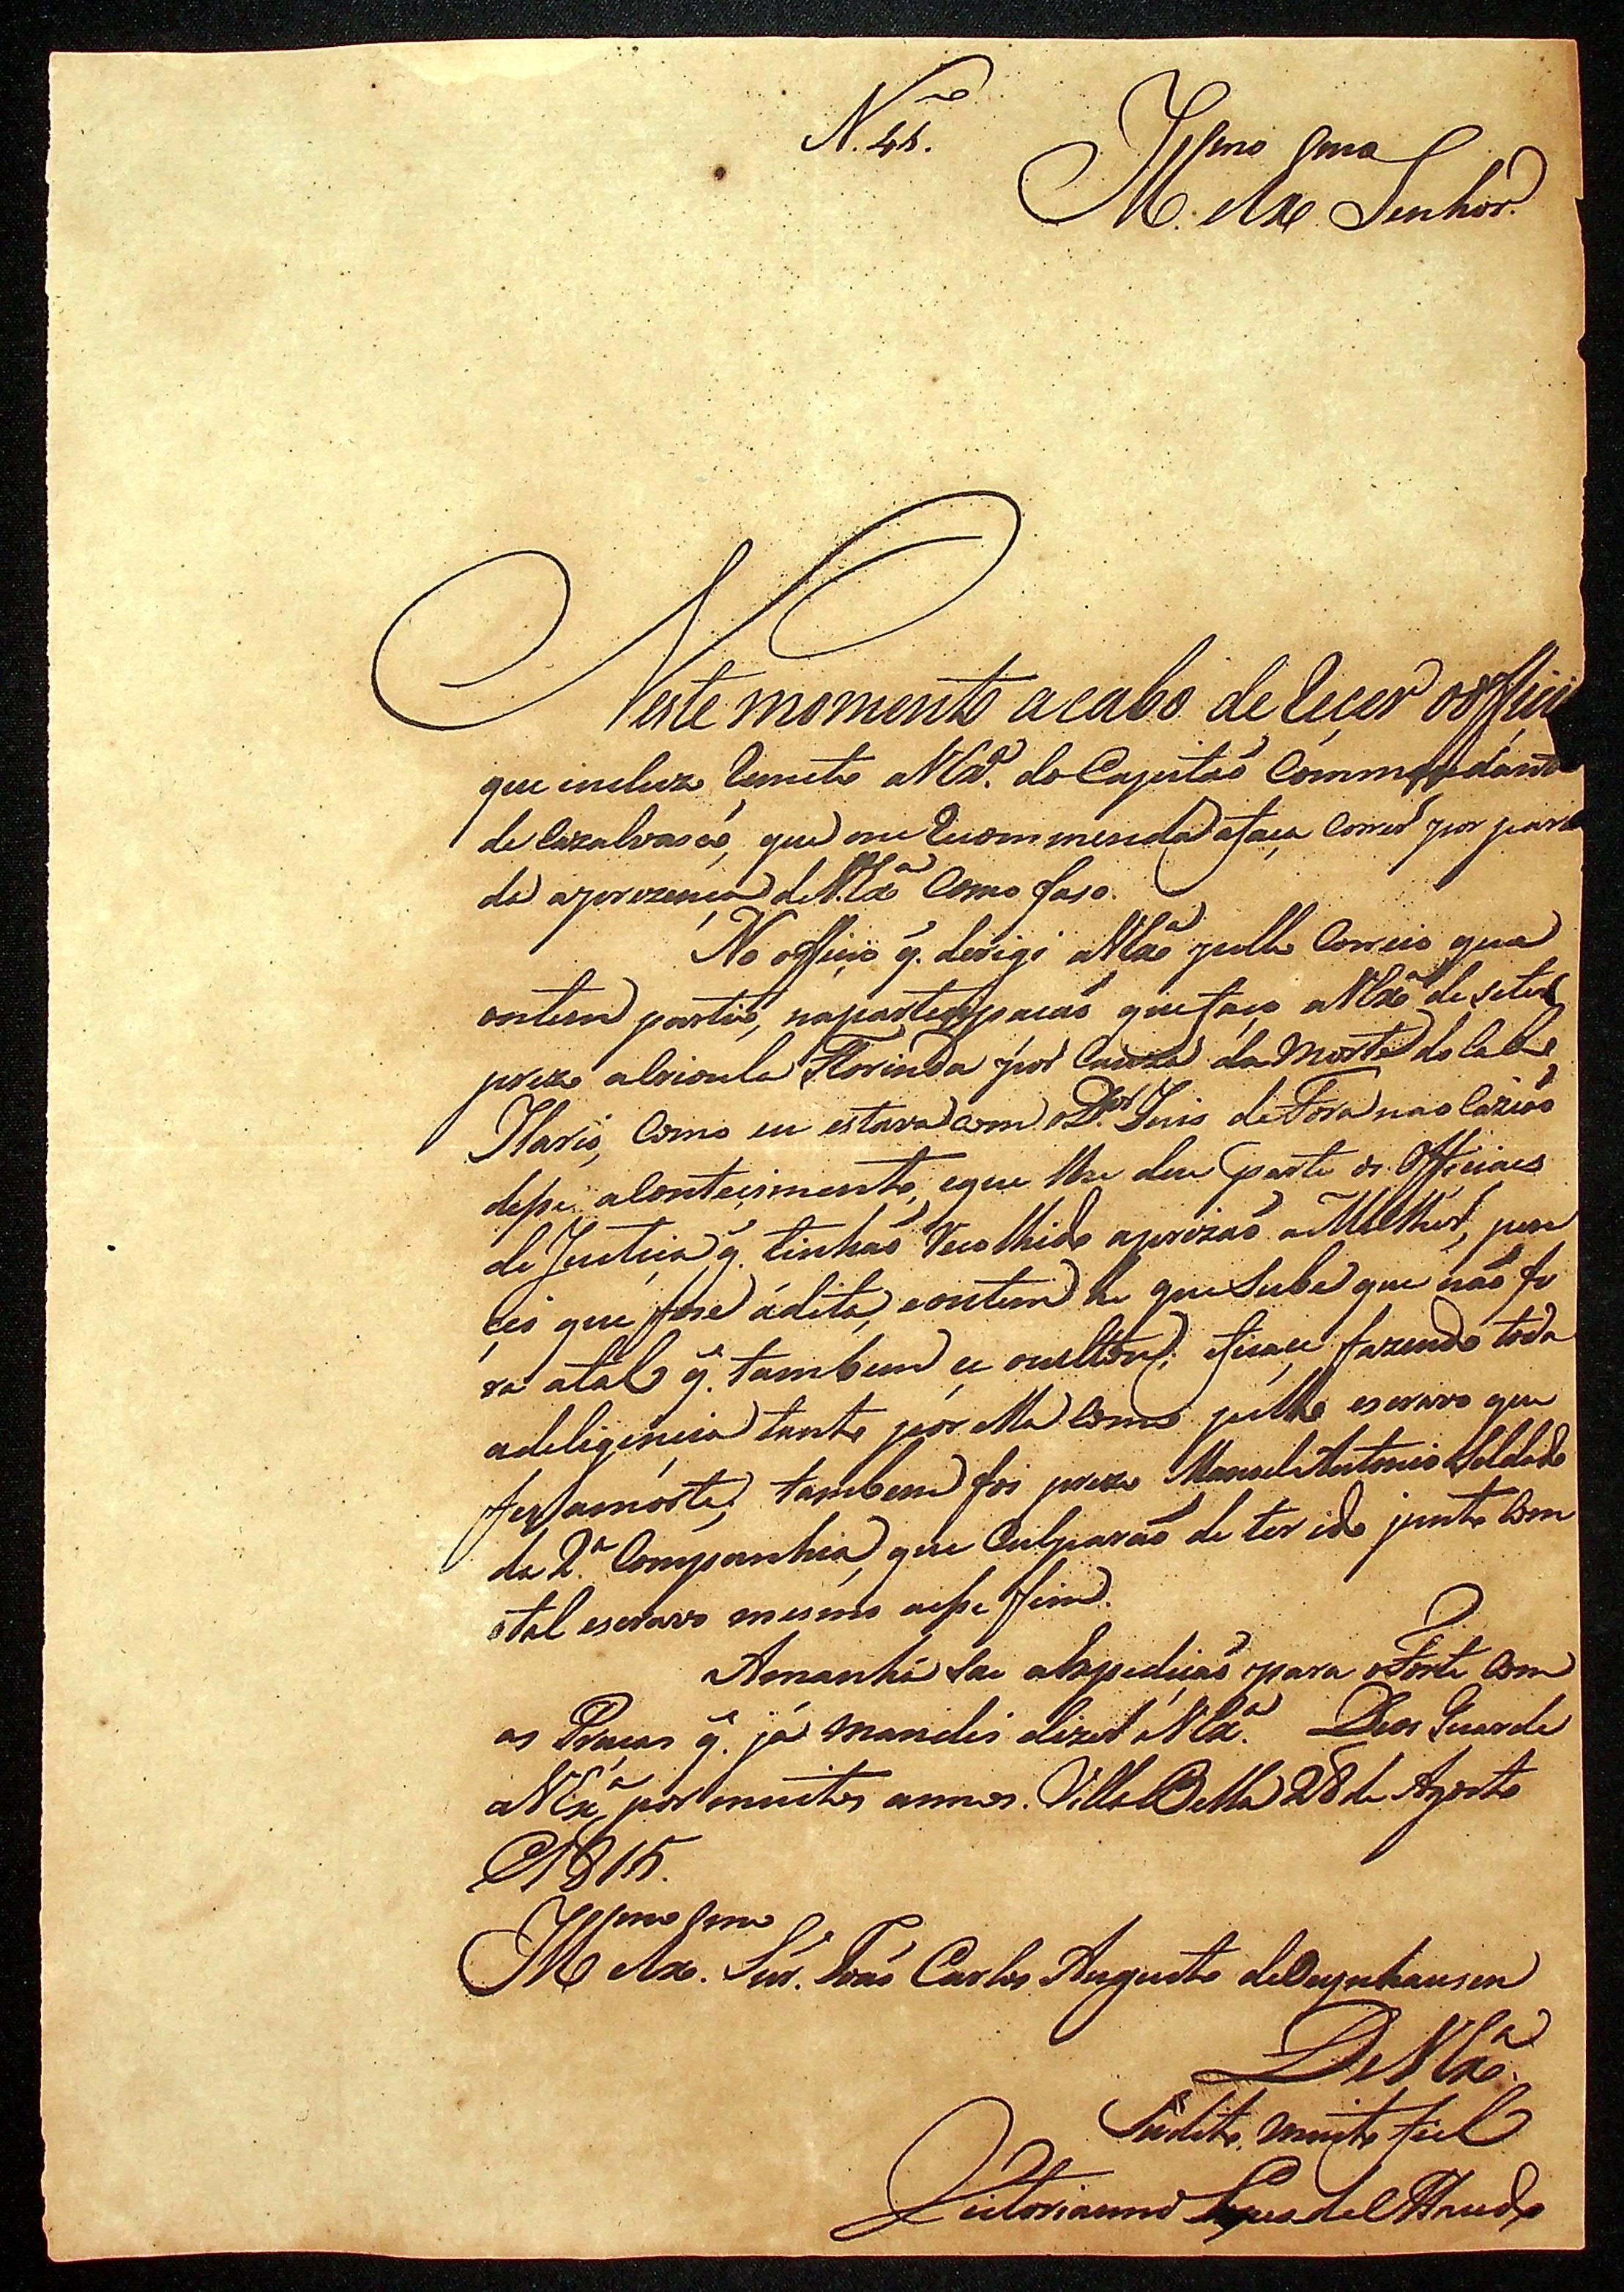 N.º 45.
Ill.mo Ex.mo Senhor
Neste momento acabo de receber o officio
que incluzo remeto a V Ex.ª do Capitaõ Commandante
de Cazalvasco, que me recommenda o faça correr por parte
da a prezença de V Ex.ª como faso.
No officio q. derigi a V Ex.ª pello Correio que
ontem partio, na partecipacaõ que faço a V Ex.ª de se ter
preza a Crioula Florinda por cauza da morte do Cabo
Ilario, como eu estava com o D.or Juis de Fora na o caziaõ
desse acontecimento, e que lhe deu parte os Officiaes
de Justiça q. tinhaõ recolhido a prizaõ a Mulher, pen
cei que fose a dita, e ontem he que Sube que naõ fo
ra a tal q. tambem se ocultou; e fica se fazendo toda
a deligencia tanto por ella como pello escravo que
fez a morte; tambem foi prezo Manoel Antonio Soldado
da 2.ª Companhia, que culparaõ de ter ido junto com
o tal escravo mesmo a esse fim.
Amanhã sae a Expediçaõ para o Forte com
as Praças q. já mandei dizer a V Ex.ª Deos Guarde
a V Ex.ª por muitos annos. Villa Bella 28 de Agosto
de 1815.
Ill.mo Ex.mo Snr. Joaõ Carlos Augusto de Oeynhausen
De V Ex.ª
Sudito muito fiel
Victorianno Lopes de Macedo